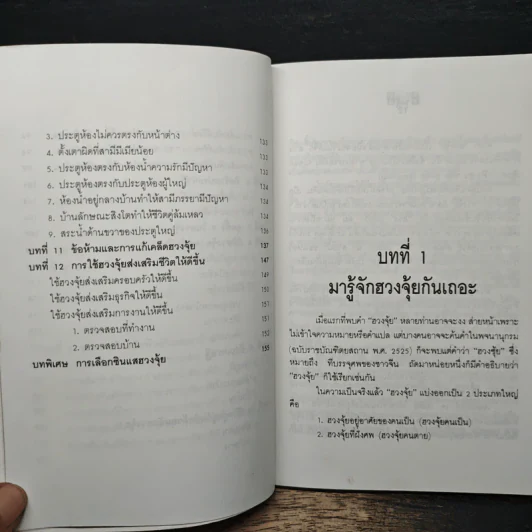 3. ประตูห้องไม่ควรตรงกับหน้าต่าง
4. ตั้งเตาผิดที่สามีมีเมียน้อย
5. ประตูห้องตรงกับห้องน้ำความรักมีปัญหา
6. ประตูห้องตรงกับประตูห้องผู้ใหญ่
7. ห้องน้ำอยู่กลางบ้านทำให้สามีภรรยามีปัญหา
8. บ้านลักษณะสิงโตทำให้ชีวิตคู่ล้มเหลว
9. สระน้ำด้านขวาของประตูใหญ่
บทที่ 11 ข้อห้ามและการแก้เคล็ดฮวงจุ้ย 137
บทที่ 12 การใช้ฮวงจุ้ยส่งเสริมชีวิตให้ดีขึ้น 147
ใช้ฮวงจุ้ยส่งเสริมครอบครัวให้ดีขึ้น
ใช้ฮวงจุ้ยส่งเสริมธุรกิจให้ดีขึ้น 151
ใช้ฮวงจุ้ยส่งเสริมการงานให้ดีขึ้น 151
1. ตรวจสอบที่ทำงาน
2. ตรวจสอบบ้าน
บทพิเศษ การเลือกซินแสฮวงจุ้ย 155
บทที่ 1
มารู้จักฮวงจุ้ยกันเถอะ
เมื่อแรกที่พบคำ "ฮวงจุ้ย" หลายท่านอาจจะงง ส่ายหน้าเพราะ
ไม่เข้าใจความหมายหรือคำแปล แต่บางคนอาจจะค้นคำในพจนานุกรม
(ฉบับราชบัณฑิตยสถาน พ.ศ. 2525) ก็จะพบแต่คำว่า "ฮวงซุ้ย" ซึ่ง
หมายถึง ที่บรรจุศพของชาวจีน ถัดมาหน่อยหนึ่งก็มีคำอธิบายว่า
"ฮวงจุ้ย" ก็ใช้เรียกเช่นกัน
ในความเป็นจริงแล้ว "ฮวงจุ้ย" แบ่งออกเป็น 2 ประเภทใหญ่
คือ
1. ฮวงจุ้ยอยู่อาศัยของคนเป็น (ฮวงจุ้ยคนเป็น)
2. ฮวงจุ้ยที่ฝังศพ (ฮวงจุ้ยคนตาย)